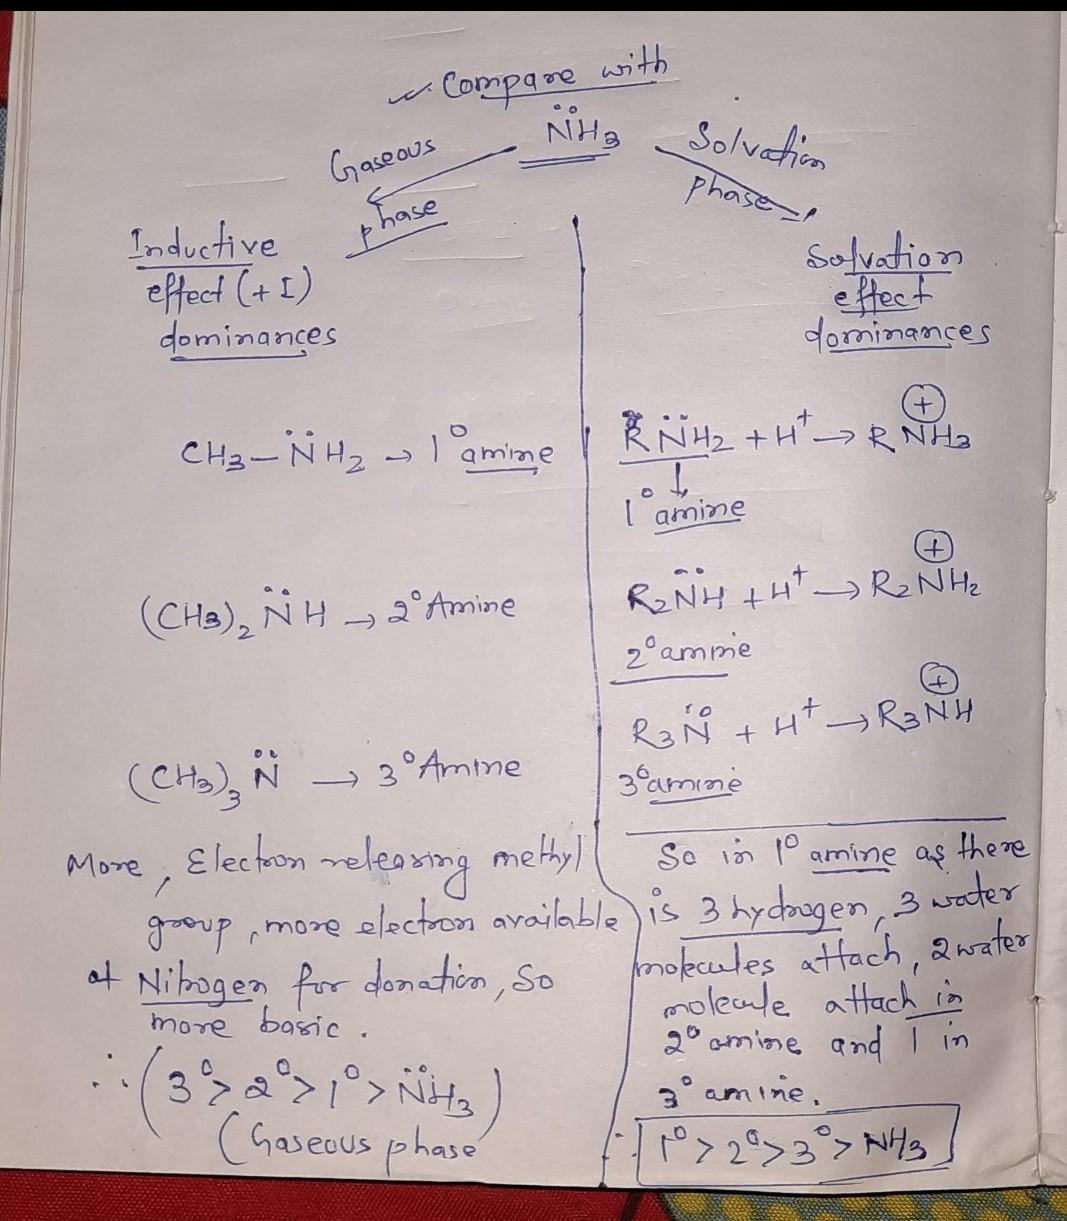 Compare with
N̈H3
Gaseous
phase
Solvation
phase
Inductive
effect (+I)
dominances
CH3–N̈H2 → 1° amine
(CH3)2 N̈H → 2° Amine
(CH3)3 N̈ → 3° Amine
More, Electron releasing methyl
group, more electron available
at Nitrogen for donation, So
more basic.
∴ (3° > 2° > 1° > N̈H3)
(Gaseous phase
Solvation
effect
dominances
R N̈H2 + H+ → R N⊕H3
1° amine
R2N̈H + H+ → R2N⊕H2
2° amine
R3N̈ + H+ → R3N⊕H
3° amine
So in 1° amine as there
is 3 hydrogen, 3 water
molecules attach, 2 water
molecule attach in
2° amine and 1 in
3° amine.
∴ 1° > 2° > 3° > NH3